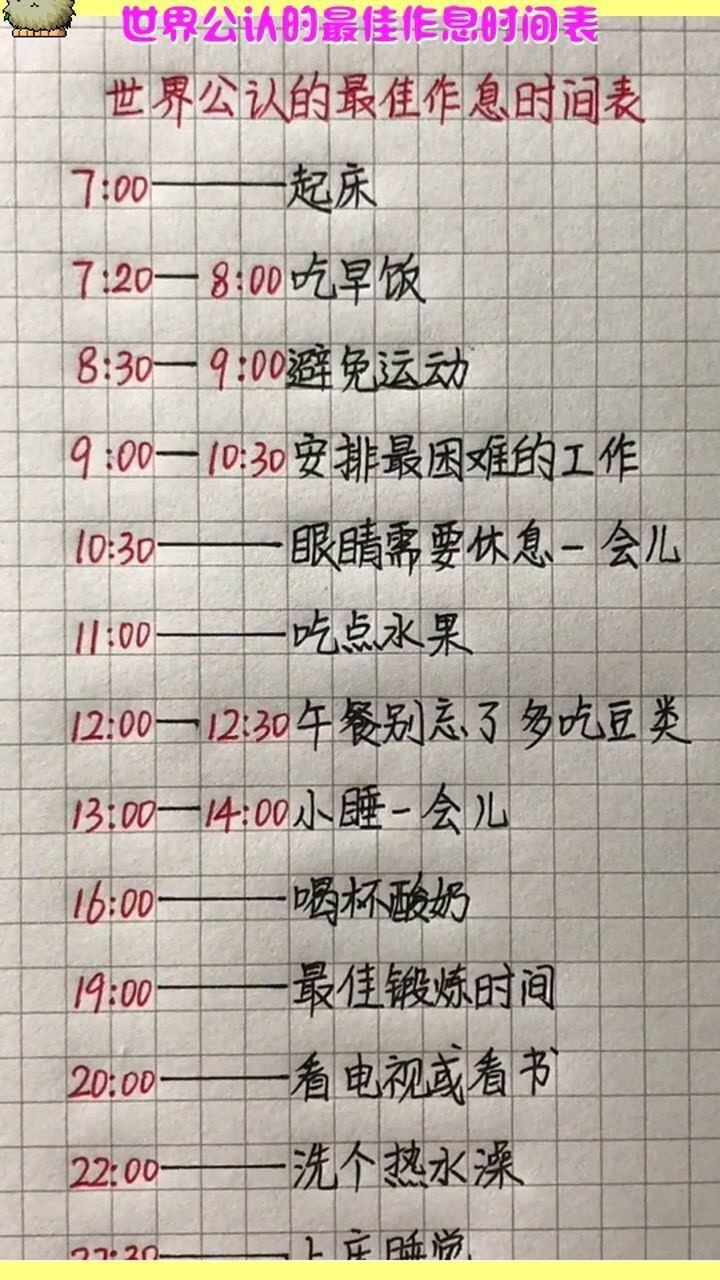 世界公认的最佳作息时间表
世界公认的最佳作息时间表
7:00——起床
7:20—8:00吃早饭
8:30—9:00避免运动
9:00—10:30安排最困难的工作
10:30——眼睛需要休息一会儿
11:00——吃点水果
12:00—12:30午餐别忘了多吃豆类
13:00—14:00小睡一会儿
16:00——喝杯酸奶
19:00——最佳锻炼时间
20:00——看电视或看书
22:00——洗个热水澡
22:30——上床睡觉